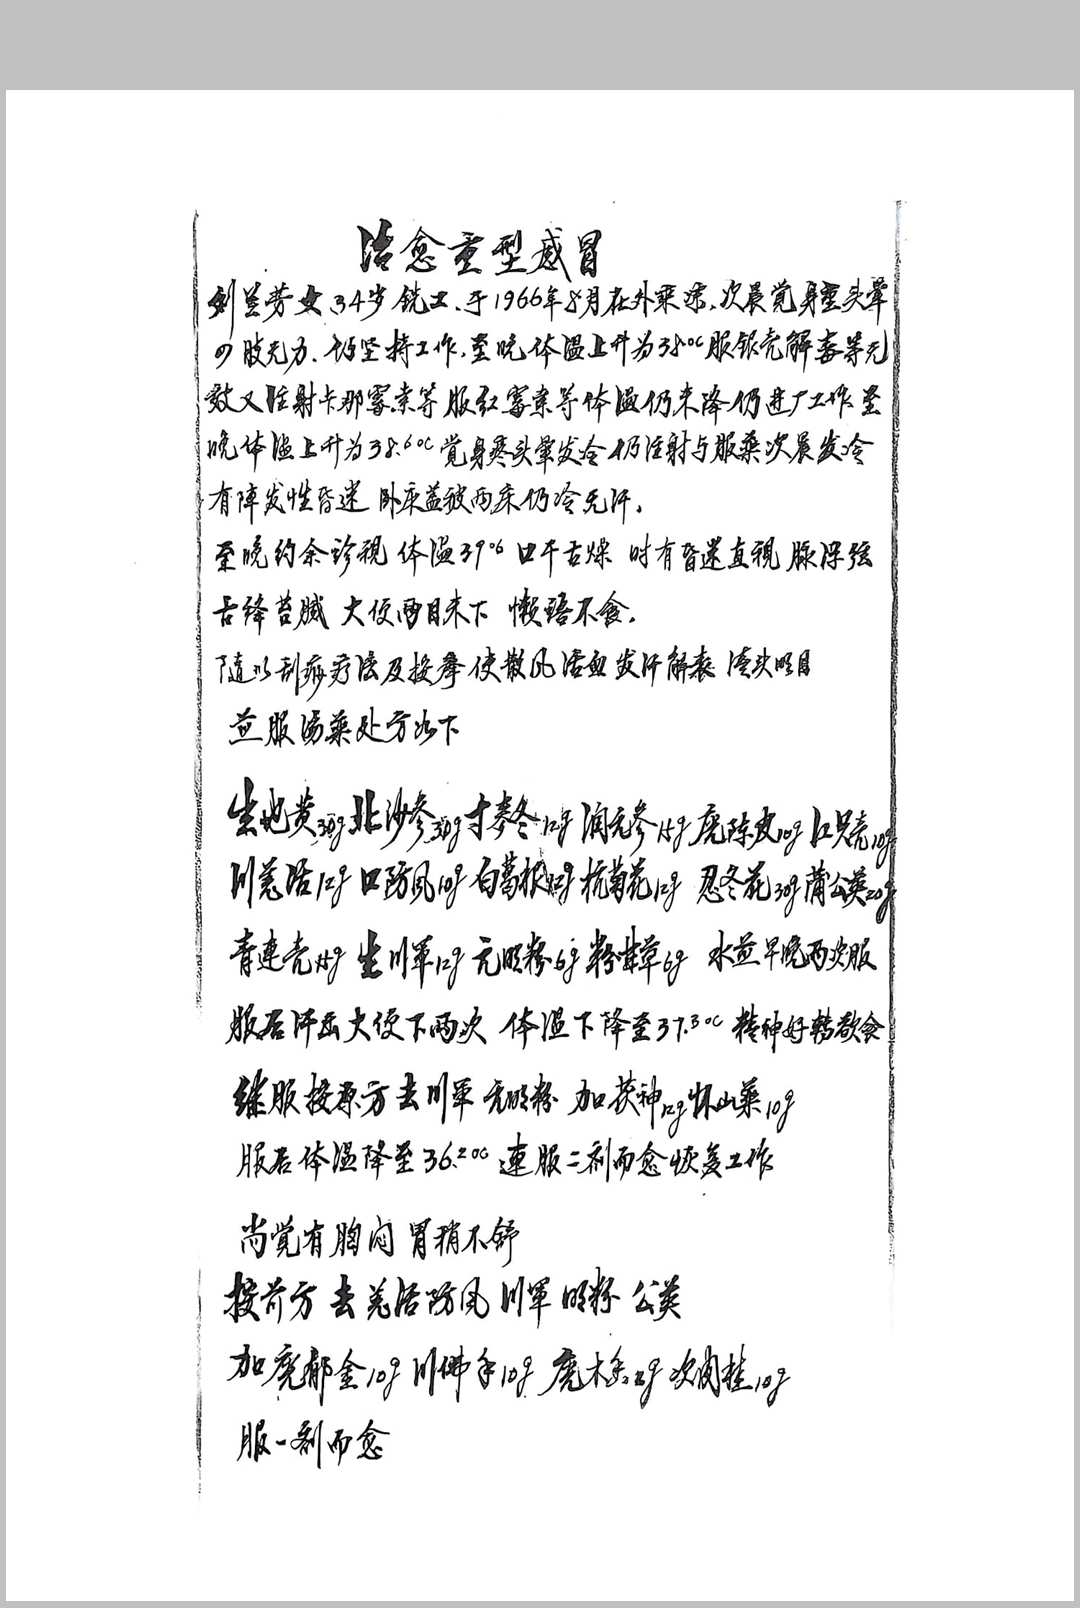 治愈重型感冒
刘兰芳女、34岁 铣工、于1966年8月在外乘凉、次晨觉身重头晕
四肢无力、坚持工作、至晚体温上升为38°C服银壳解毒等无
效又注射卡那霉素等服红霉素等体温仍未降仍进厂工作至
晚体温上升为38.6°C觉身疼头晕发冷仍注射与服药次晨发冷
有陣发性昏迷 卧床盖被两床仍冷无汗。
至晚约余诊視 体温39°6 口干舌燥 时有昏迷直視 脉浮弦
舌绛苔腻 大便两日未下 懒语不食。
随以刮痧疗法及按摩使散风活血发汗解表 清头明目
並服汤药处方如下
生地黄30g北沙参30g寸麥冬12g润元参15g广陈皮10g江只壳10g
川羌活12g口防风10g白葛根12g杭菊花12g 忍冬花30g蒲公英20g
青连壳15g 生川軍12g 元明粉6g粉甘草6g 水煎早晚两次服
服后汗出大便下两次 体温下降至37.3°C 精神好转欲食
继服按原方去川軍 元明粉 加茯神12g怀山药10g
服后体温降至36.2°C 連服二剂而愈恢复工作
尚觉有胸闷 胃稍不舒
按前方 去羌活防风 川軍 明粉 公英
加广郁金10g川佛手10g 广木香 肉桂10g
服一剂而愈